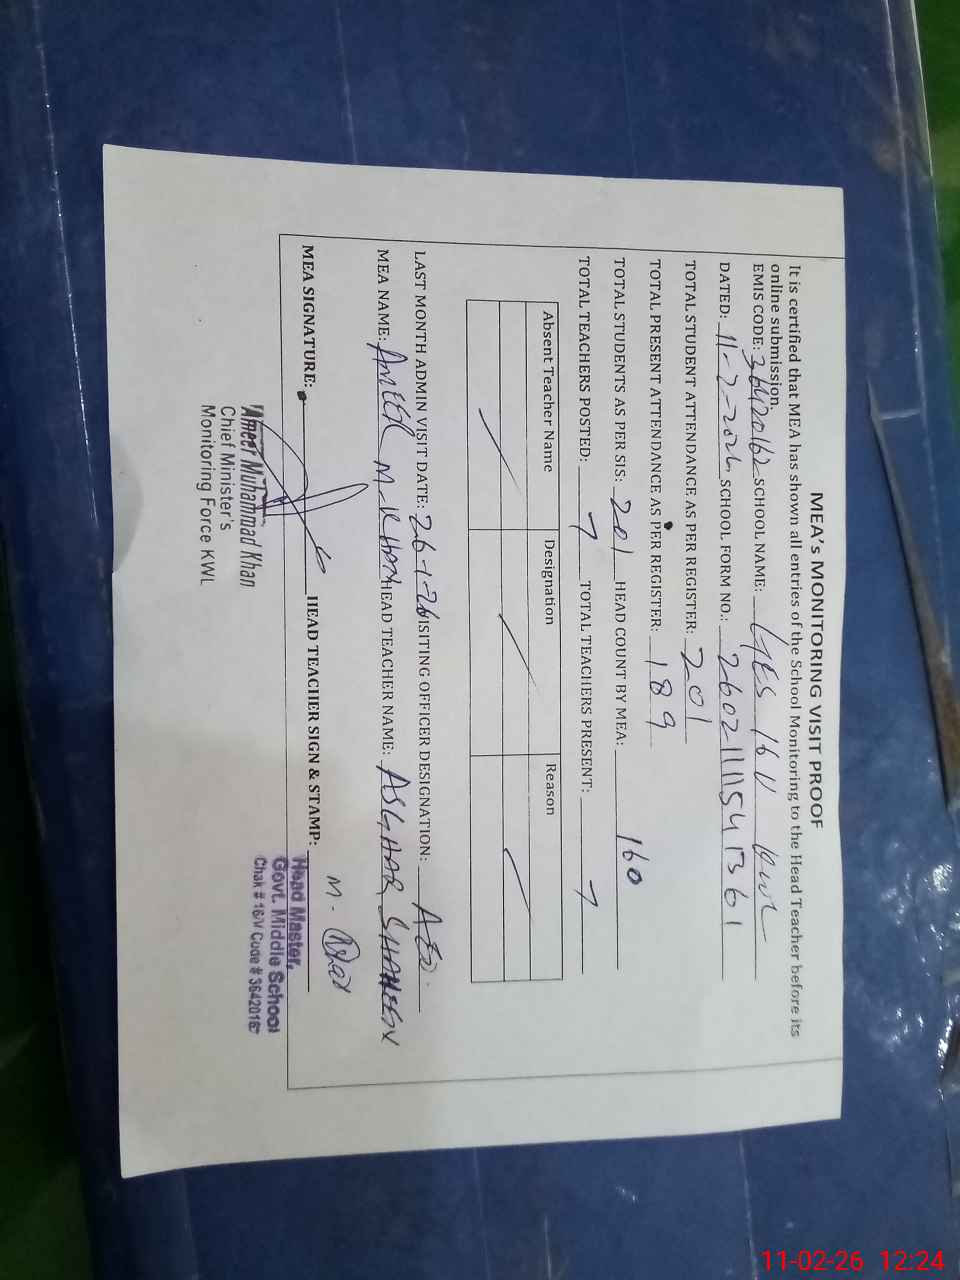 MEA's MONITORING VISIT PROOF
It is certified that MEA has shown all entries of the School Monitoring to the Head Teacher before its
online submission.
EMIS CODE: 36420162 SCHOOL NAME: 16 V
DATED: 11-2-2026 SCHOOL FORM NO.: 26021111541361
TOTAL STUDENT ATTENDANCE AS PER REGISTER: 201
TOTAL PRESENT ATTENDANCE AS PER REGISTER: 189
TOTAL STUDENTS AS PER SIS: 201 HEAD COUNT BY MEA: 160
TOTAL TEACHERS POSTED: 7 TOTAL TEACHERS PRESENT: 7
Absent Teacher Name Designation Reason
LAST MONTH ADMIN VISIT DATE: 26-1-26 VISITING OFFICER DESIGNATION: AEO
MEA NAME: AMEER M. KHAN HEAD TEACHER NAME: ASGHAR
MEA SIGNATURE: HEAD TEACHER SIGN & STAMP: M.
Ameer Muhammad Khan
Chief Minister's
Monitoring Force KWL
Head Master,
Govt. Middle School
Chak # 16/V Code # 36420162
11-02-26 12:24